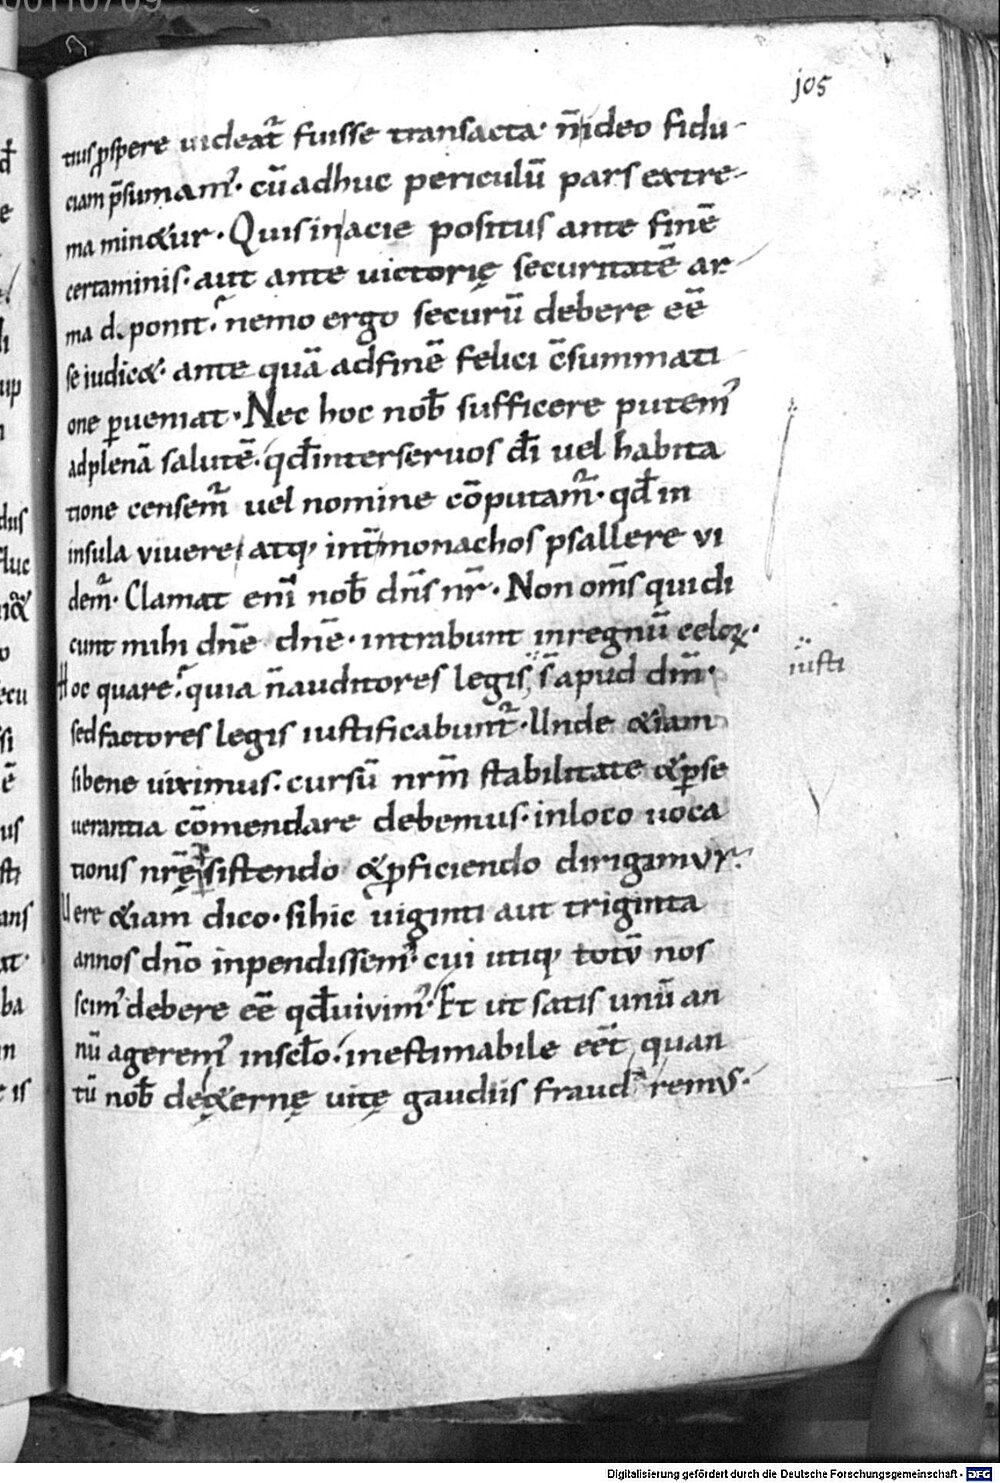 00110709
105
tius ꝓspere uideat᷑ fuisse transacta· n̄ ideo fidu-
ciam p̄sumamꝰ· cū adhuc periculū pars extre-
ma min&ur· Quis in acie positus ante finē
certaminis· aut ante uictorię securitatē ar-
ma deponit· nemo ergo securū debere eē
se iudic&· ante quā ad finē felici c̄summati
one ꝑueniat· Nec hoc nob̄ sufficere putemꝰ
ad plenā salutē· qd̄ inter seruos dī uel habita
tione censem᷑ uel nomine cōputam᷑· qd̄ in
insula vivere, atq; int̄ monachos psallere vi
dem᷑· Clamat enī nob̄ dn̄s nr̄· Non om̄s qui di
cunt mihi dn̄e dn̄e· intrabunt in regnū celoꝝ·
Hoc quare· quia n̄ auditores legis s̄ apud dm̄·
iusti
sed factores legis iustificabunt᷑· Unde &iam
si bene uiximus· cursū nrm̄ stabilitate & ꝑse
uerantia cōmendare debemus· in loco uoca
tionis nrę̄ sistendo & ꝓficiendo dirigamvr·
Uere &iam dico· si hic uiginti aut triginta
annos dn̄o inpendissemꝰ cui utiq; totū nos
scimꝰ debere eē qd̄ uivimꝰ· Et ut satis unū an
nūageremꝰ in sclo· inestimabile eēt, quan
tū nob̄ de &ernę uitę gaudiis fraudaremvs·
Digitalisierung gefördert durch die Deutsche Forschungsgemeinschaft - DFG